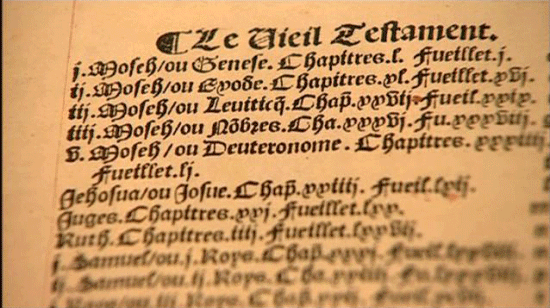 ¶ Le Uieil Testament.
j. Moseh/ou Genese. Chapitres. l. Fueillet. j.
ij. Moseh/ou Exode. Chapitres. xl. Fueillet. xvj.
iij. Moseh/ou Leuiticq̃. Chap̃. xxvij. Fueil. xxix.
iiij. Moseh/ou Nõbres. Cha. xxxvj. Fu. xxxviij
v. Moseh/ou Deuteronome. Chapitres. xxxiiij
Fueillet. lj.
Jehosua/ou Josue. Chap̃. xxiiij. Fueil. lxij.
Juges. Chapitres. xxj. Fueillet. lxx.
Ruth. Chapitres. iiij. Fueillet.
j. Samuel/ou j. Roys. Chap̃. xxxj. Fueil.
ij. Samuel/ou ij. Roys. Cha. xxiiij. Fu.